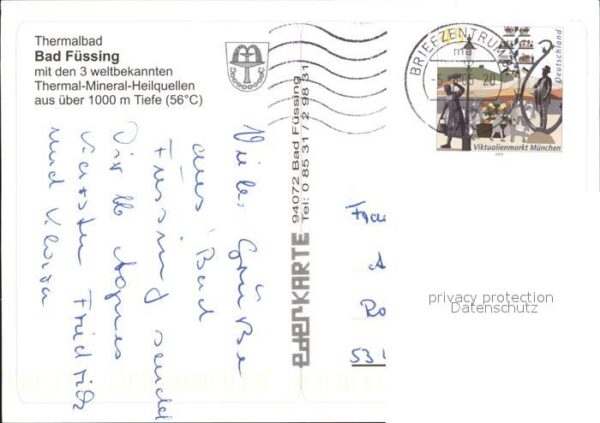 Thermalbad
Bad Füssing
mit den 3 weltbekannten
Thermal-Mineral-Heilquellen
aus über 1000 m Tiefe (56°C)
Viele Grüße
aus Bad
Füssing sendet
Dir lb Agnes
Karsten Friedrich
und
94072 Bad Füssing
Tel: 0 85 31 / 2 98 31
ederKARTE
BRIEFZENTRUM
ma
Deutschland
Viktualienmarkt München
Frau
A
Ro
531
privacy protection
Datenschutz